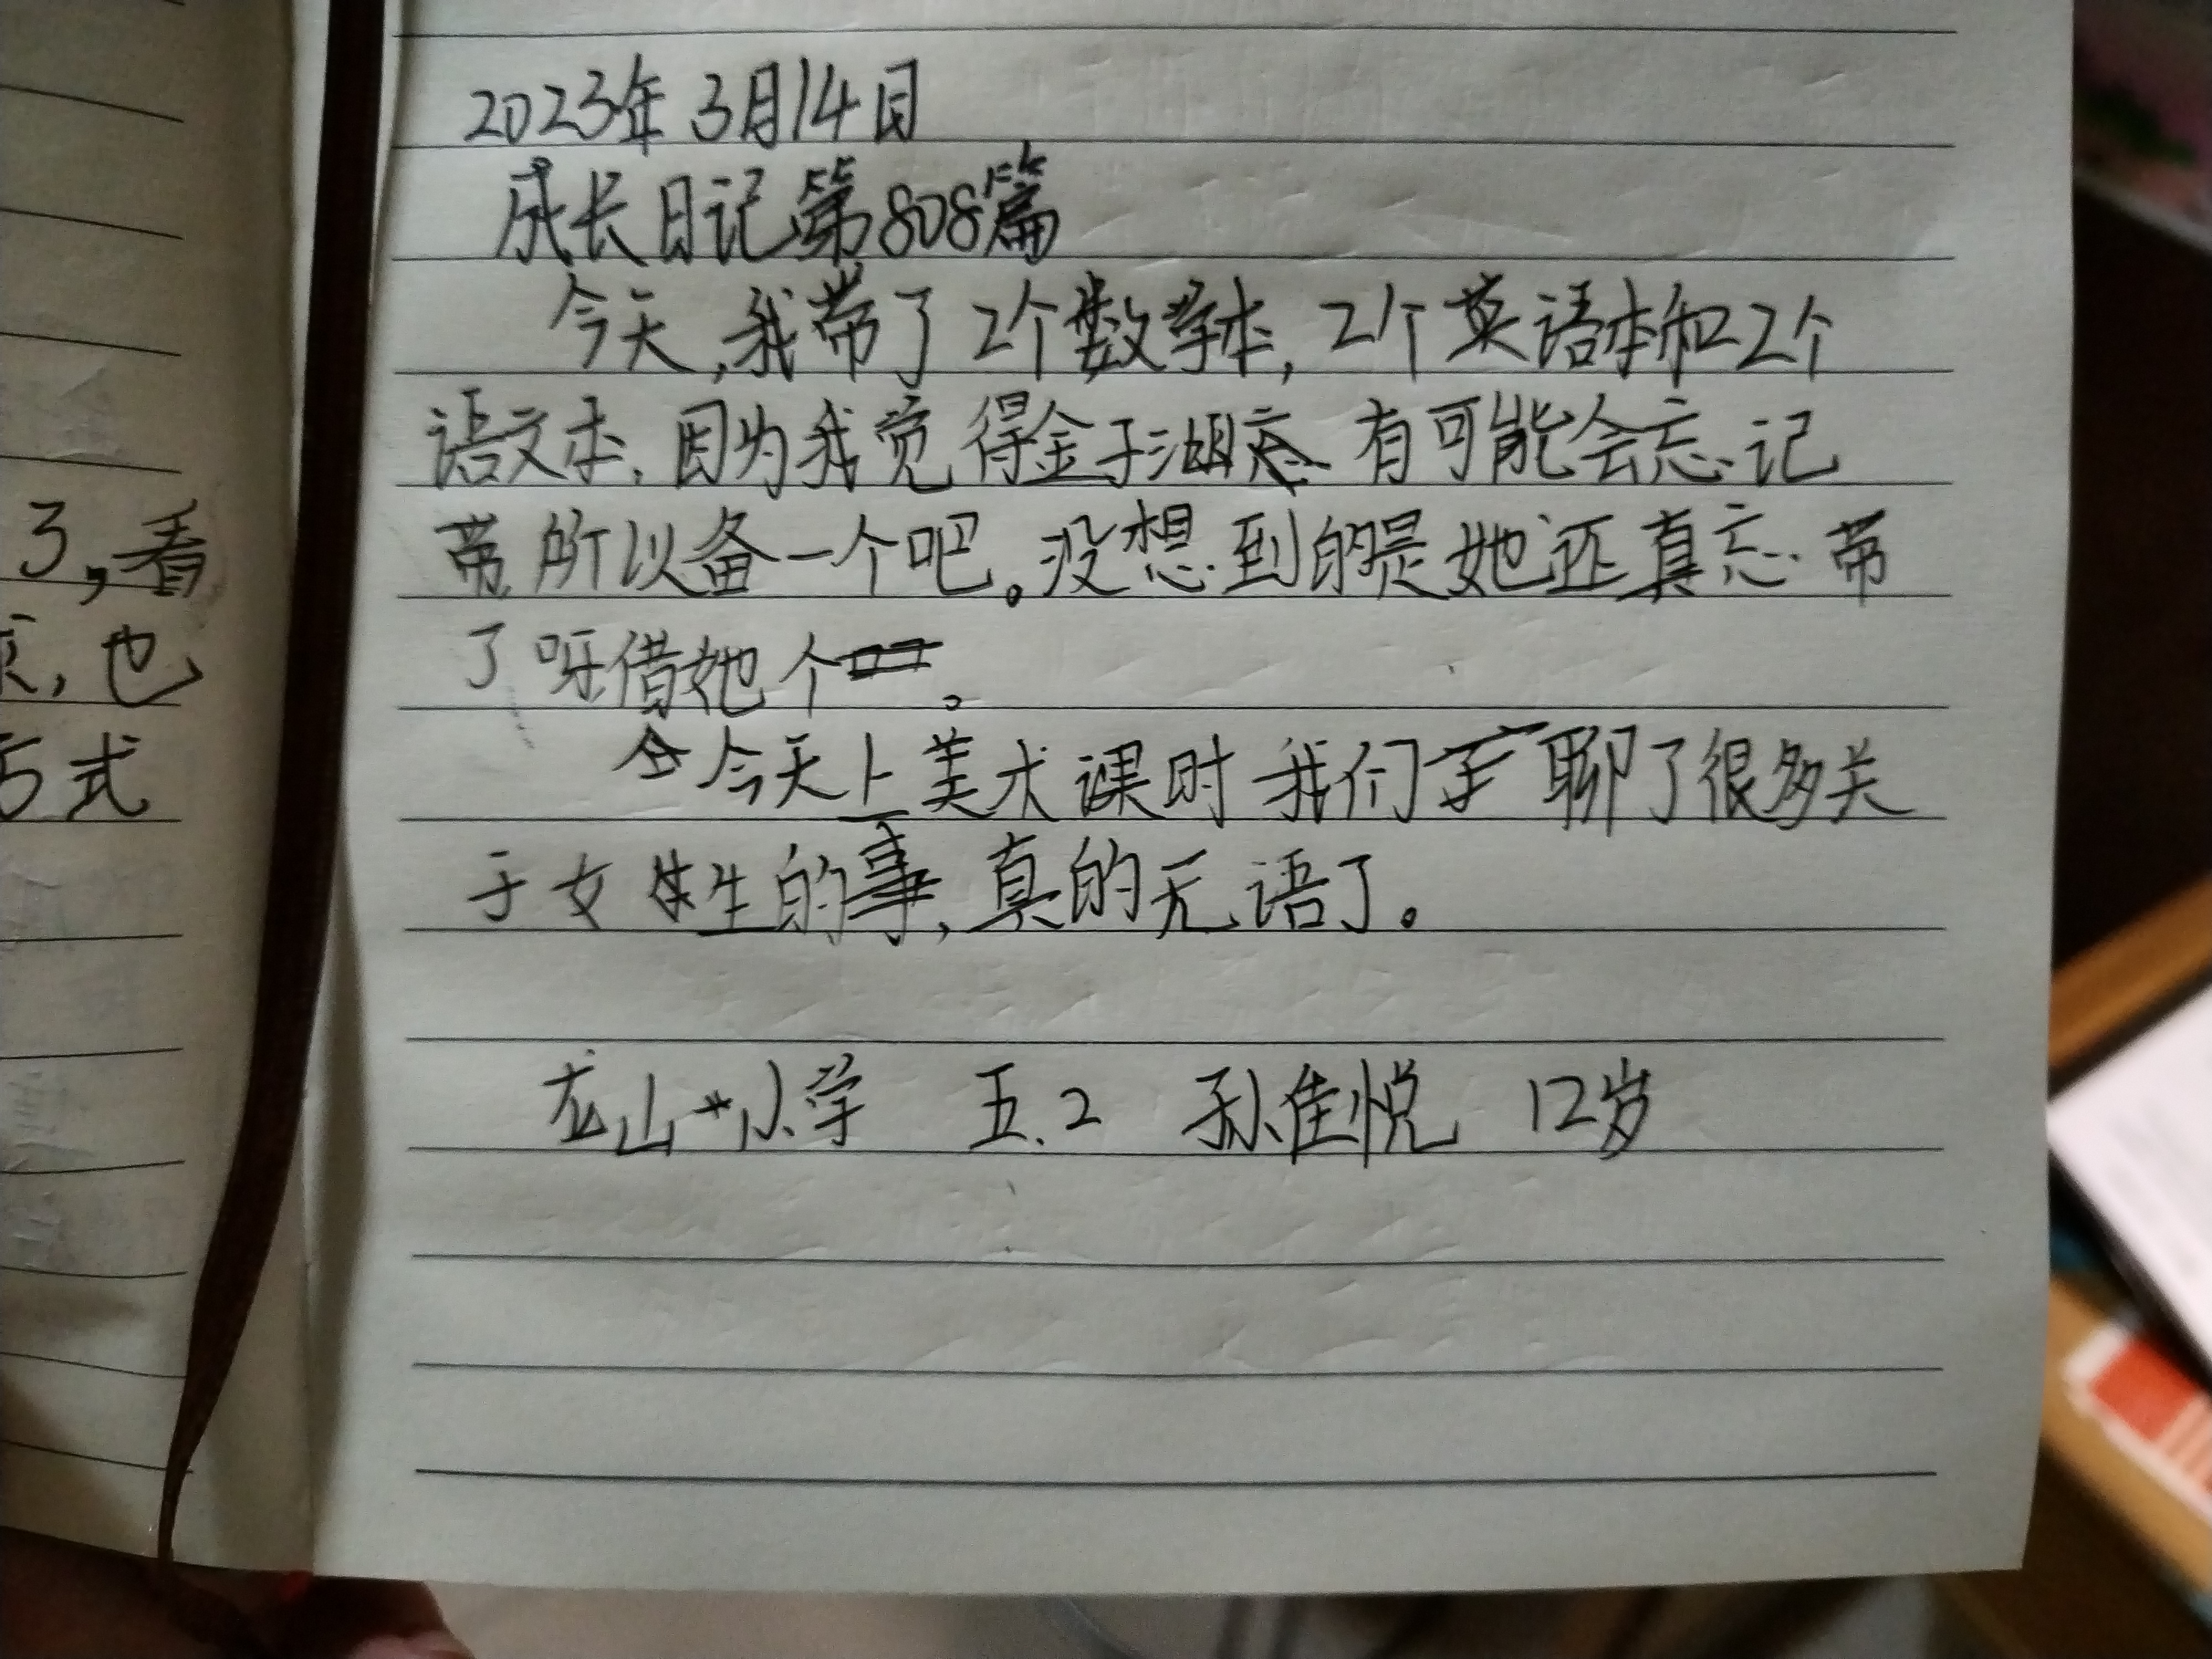 2023年3月14日
成长日记第808篇
今天,我带了2个数学本,2个英语本和2个
语文本,因为我觉得金子涵有可能会忘记
带所以备一个吧。没想到的是她还真忘带
了呀借她个。
今天上美术课时我们聊了很多关
于女生的事,真的无语了。
龙山小学 五.2 孙佳悦 12岁
了,看
,也
方式